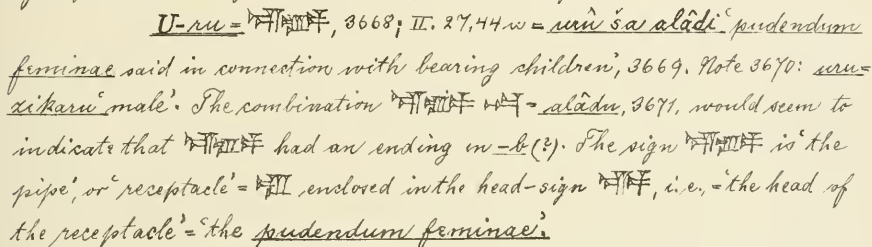 U-ru = , 3668; II. 27,44 w = urû ša alâdi 'pudendum
feminae said in connection with bearing children', 3669. Note 3670: uru =
zikaru 'male'. The combination = alâdu, 3671, would seem to
indicate that had an ending in -b (?). The sign is 'the
pipe', or 'receptacle' = enclosed in the head-sign , i.e., = 'the head of
the receptacle' = 'the pudendum feminae'.